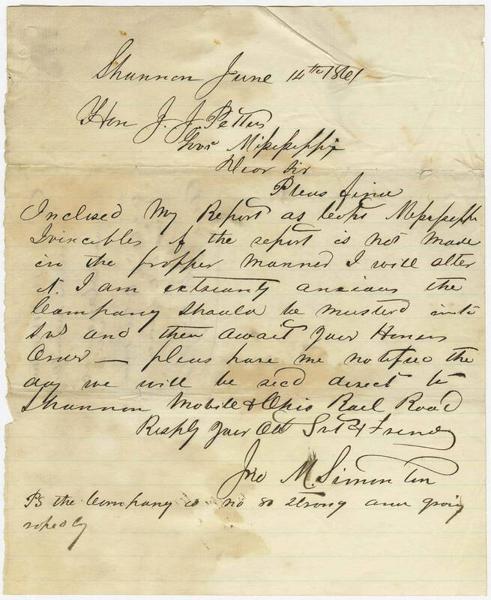 Shannon June 14th 1861
Hon J. J. Pettus
Gov Missisippi
Dear Sir
Pleas find
Inclosed My Report as Capt Missisippi
Invincibles if the report is not made
in the propper manner I will alter
it. I am extreamly anxious the
Company should be mustered into
and then await your Honers
Order — pleas have me notified the
day we will be direct to
Shannon Mobile & Ohio Rail Road
Resply your Obt Srt & Friend
Jno M. Simonton
PS the Company is no 80 strong and groing
rapedly